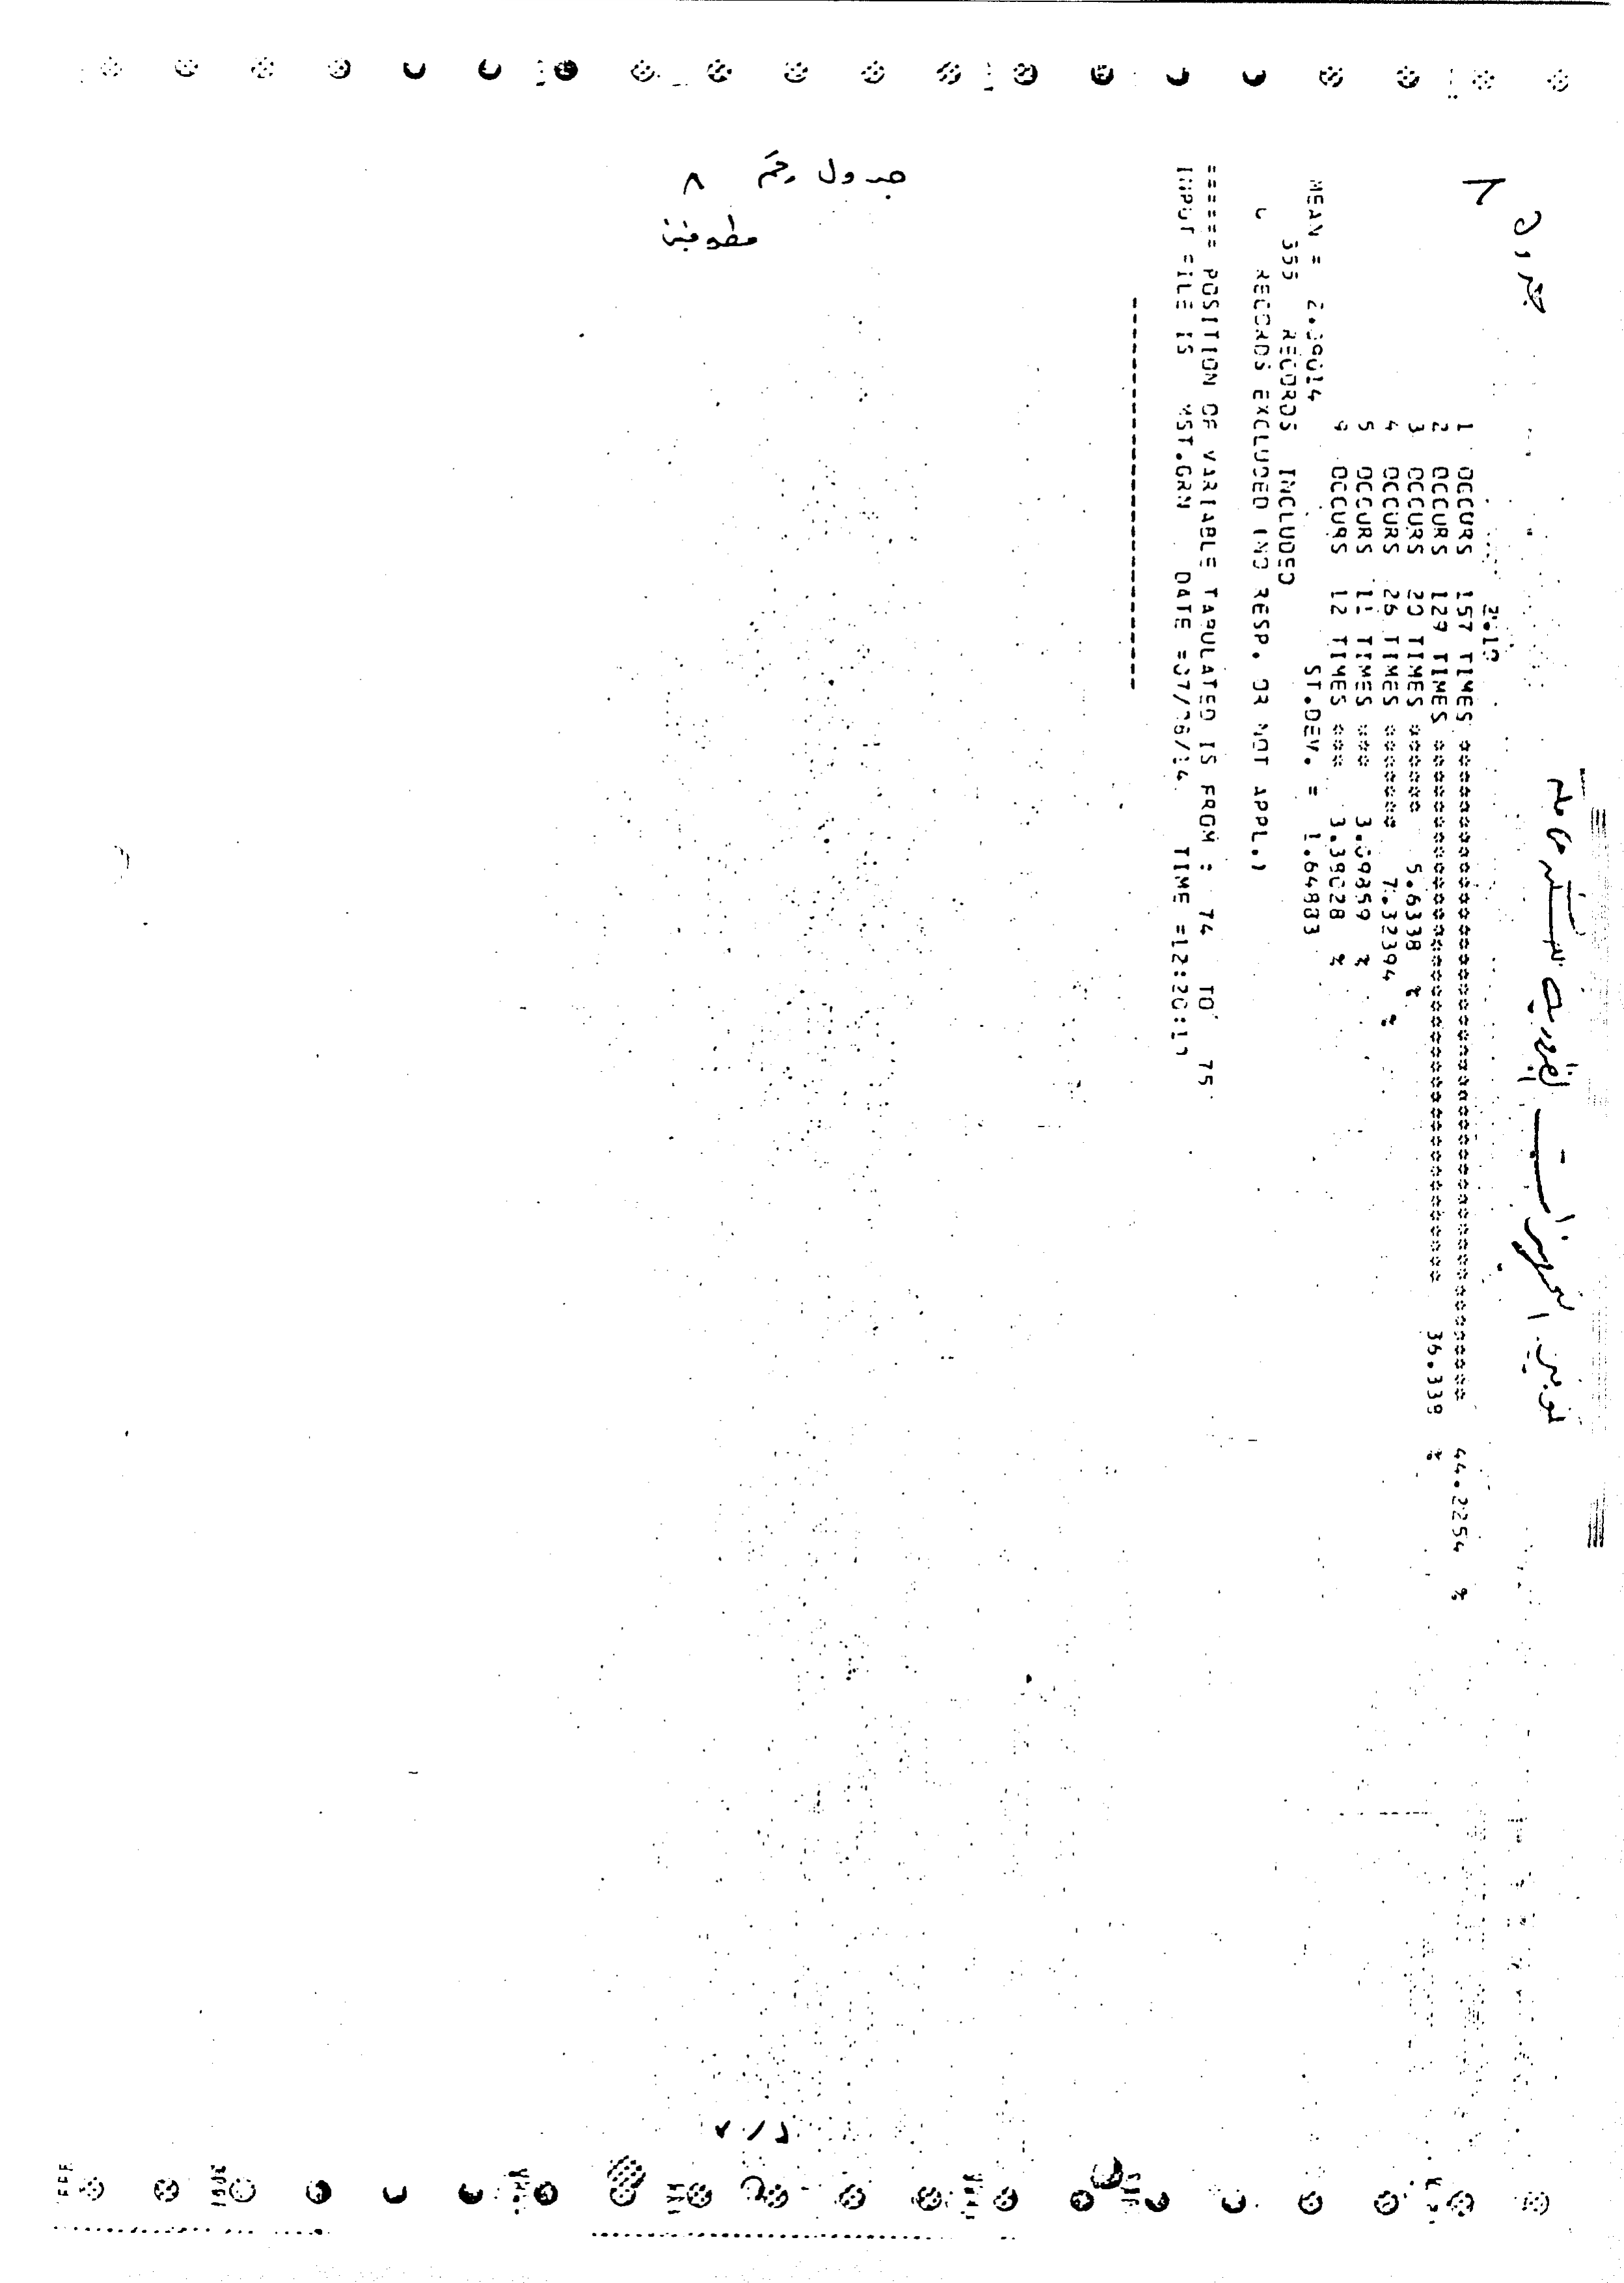 جدول رقم ٨
جدول ٨
2.10
1 OCCURS 157 TIMES ************************************************** 44.2254 %
2 OCCURS 129 TIMES ***************************************** 36.338 %
3 OCCURS 20 TIMES ****** 5.6338 %
4 OCCURS 26 TIMES ******** 7.32394 %
5 OCCURS 11 TIMES *** 3.09859 %
9 OCCURS 12 TIMES *** 3.38028 %
MEAN = 2.09014 ST.DEV. = 1.64883
355 RECORDS INCLUDED
0 RECORDS EXCLUDED (NO RESP. OR NOT APPL.)
====== POSITION OF VARIABLE TABULATED IS FROM : 74 TO 75
INPUT FILE IS MST.GRN DATE =07/06/14 TIME =12:20:19
-----------------------------------